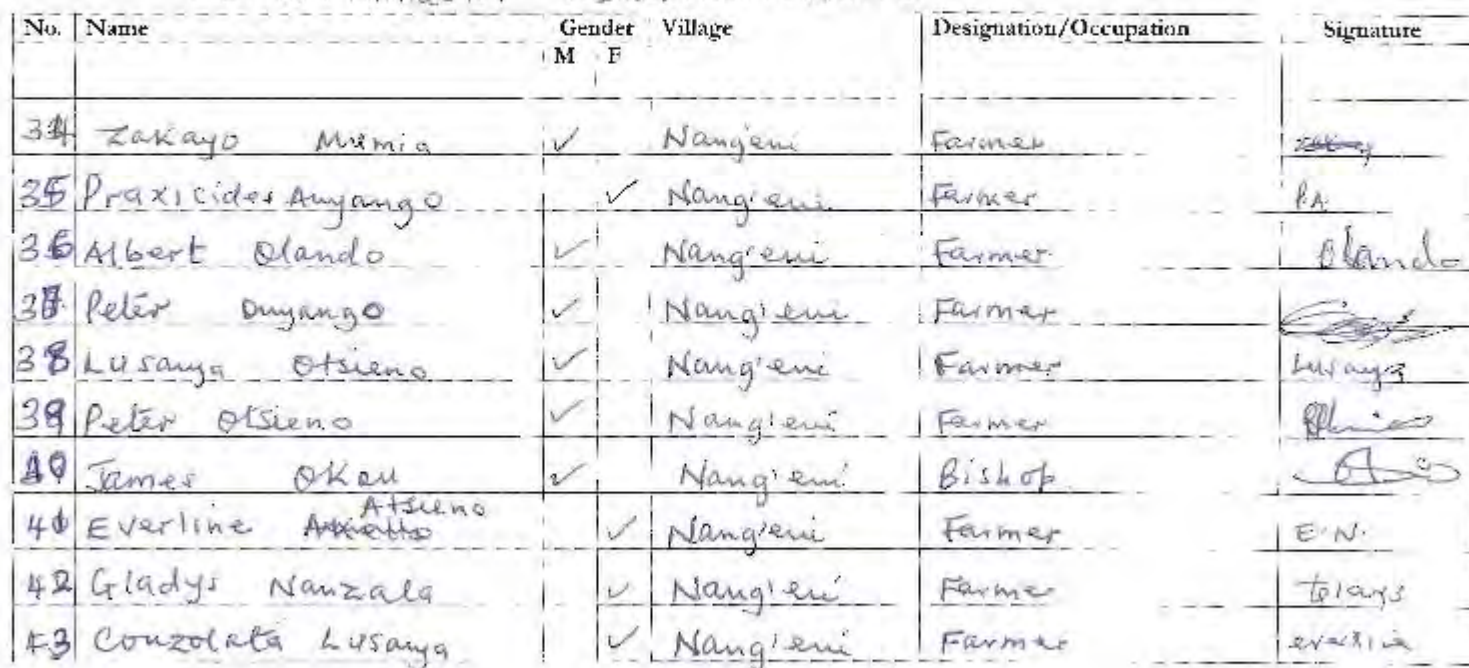 No. Name Gender Village Designation/Occupation Signature
M F
34 Zakayo Mumia ✓ Nangeni Farmer
35 Praxicides Auyango ✓ Nang'eni Farmer P.A.
36 Albert Olando ✓ Nang'eni Farmer Olando
37 Peter Onyango ✓ Nang'eni Farmer
38 Lusanya Otsieno ✓ Nang'eni Farmer
39 Peter Otsieno ✓ Nang'eni Farmer
40 James Okou ✓ Nang'eni Bishop
Atsieno
41 Everline ✓ Nang'eni Farmer E.N.
42 Gladys Nanzala ✓ Nang'eni Farmer
43 Conzolata Lusanya ✓ Nang'eni Farmer